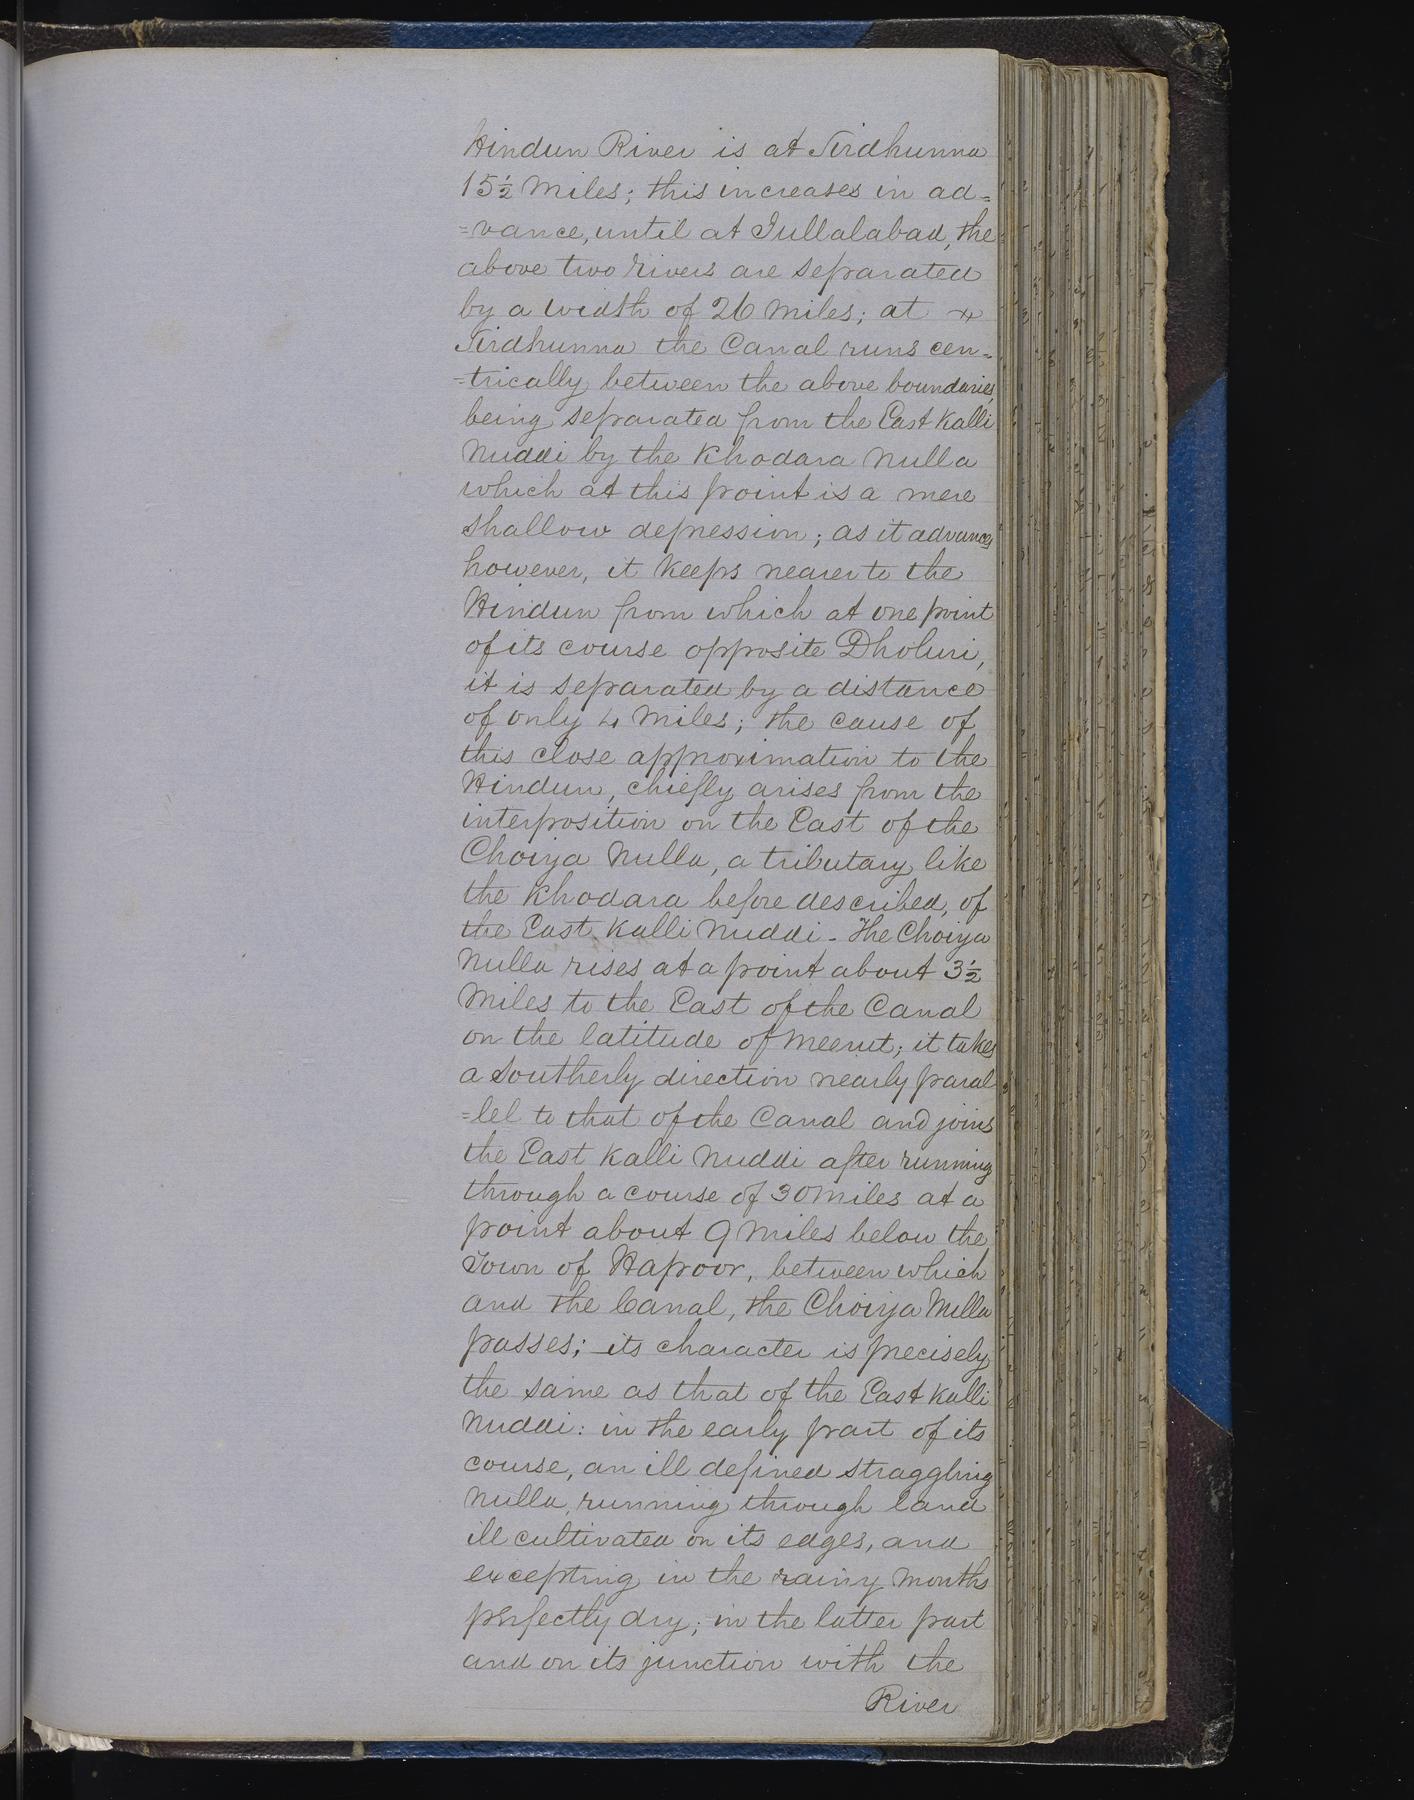 Hindun River is at Sirdhunna
15½ Miles; this increases in ad=
=vance, until at Jullalabad, the
above two rivers are separated
by a width of 26 Miles; at x
Sirdhunna the Canal runs cen=
=trically between the above boundaries,
being separated from the East Kalli
Nuddi by the Khodara Nulla
which at this point is a mere
shallow depression; as it advances
however, it keeps nearer to the
Hindun from which at one point
of its course opposite Dholuri,
it is separated by a distance
of only 4 Miles; the cause of
this close approximation to the
Hindun, chiefly arises from the
interposition on the East of the
Choiya Nulla, a tributary like
the Khodara before described, of
the East Kalli Nuddi. The Choiya
Nulla rises at a point about 3½
Miles to the East of the Canal
on the latitude of Meerut; it takes
a Southerly direction nearly paral
=lel to that of the Canal and joins
the East Kalli Nuddi after running
through a course of 30 Miles at a
point about 9 Miles below the
Town of Hapoor, between which
and the Canal, the Choiya Nulla
passes; its character is precisely
the same as that of the East Kalli
Nuddi: in the early part of its
course, an ill defined straggling
Nulla, running through land
ill cultivated on its edges, and
excepting in the rainy Months
perfectly dry; in the latter part
and on its junction with the
River